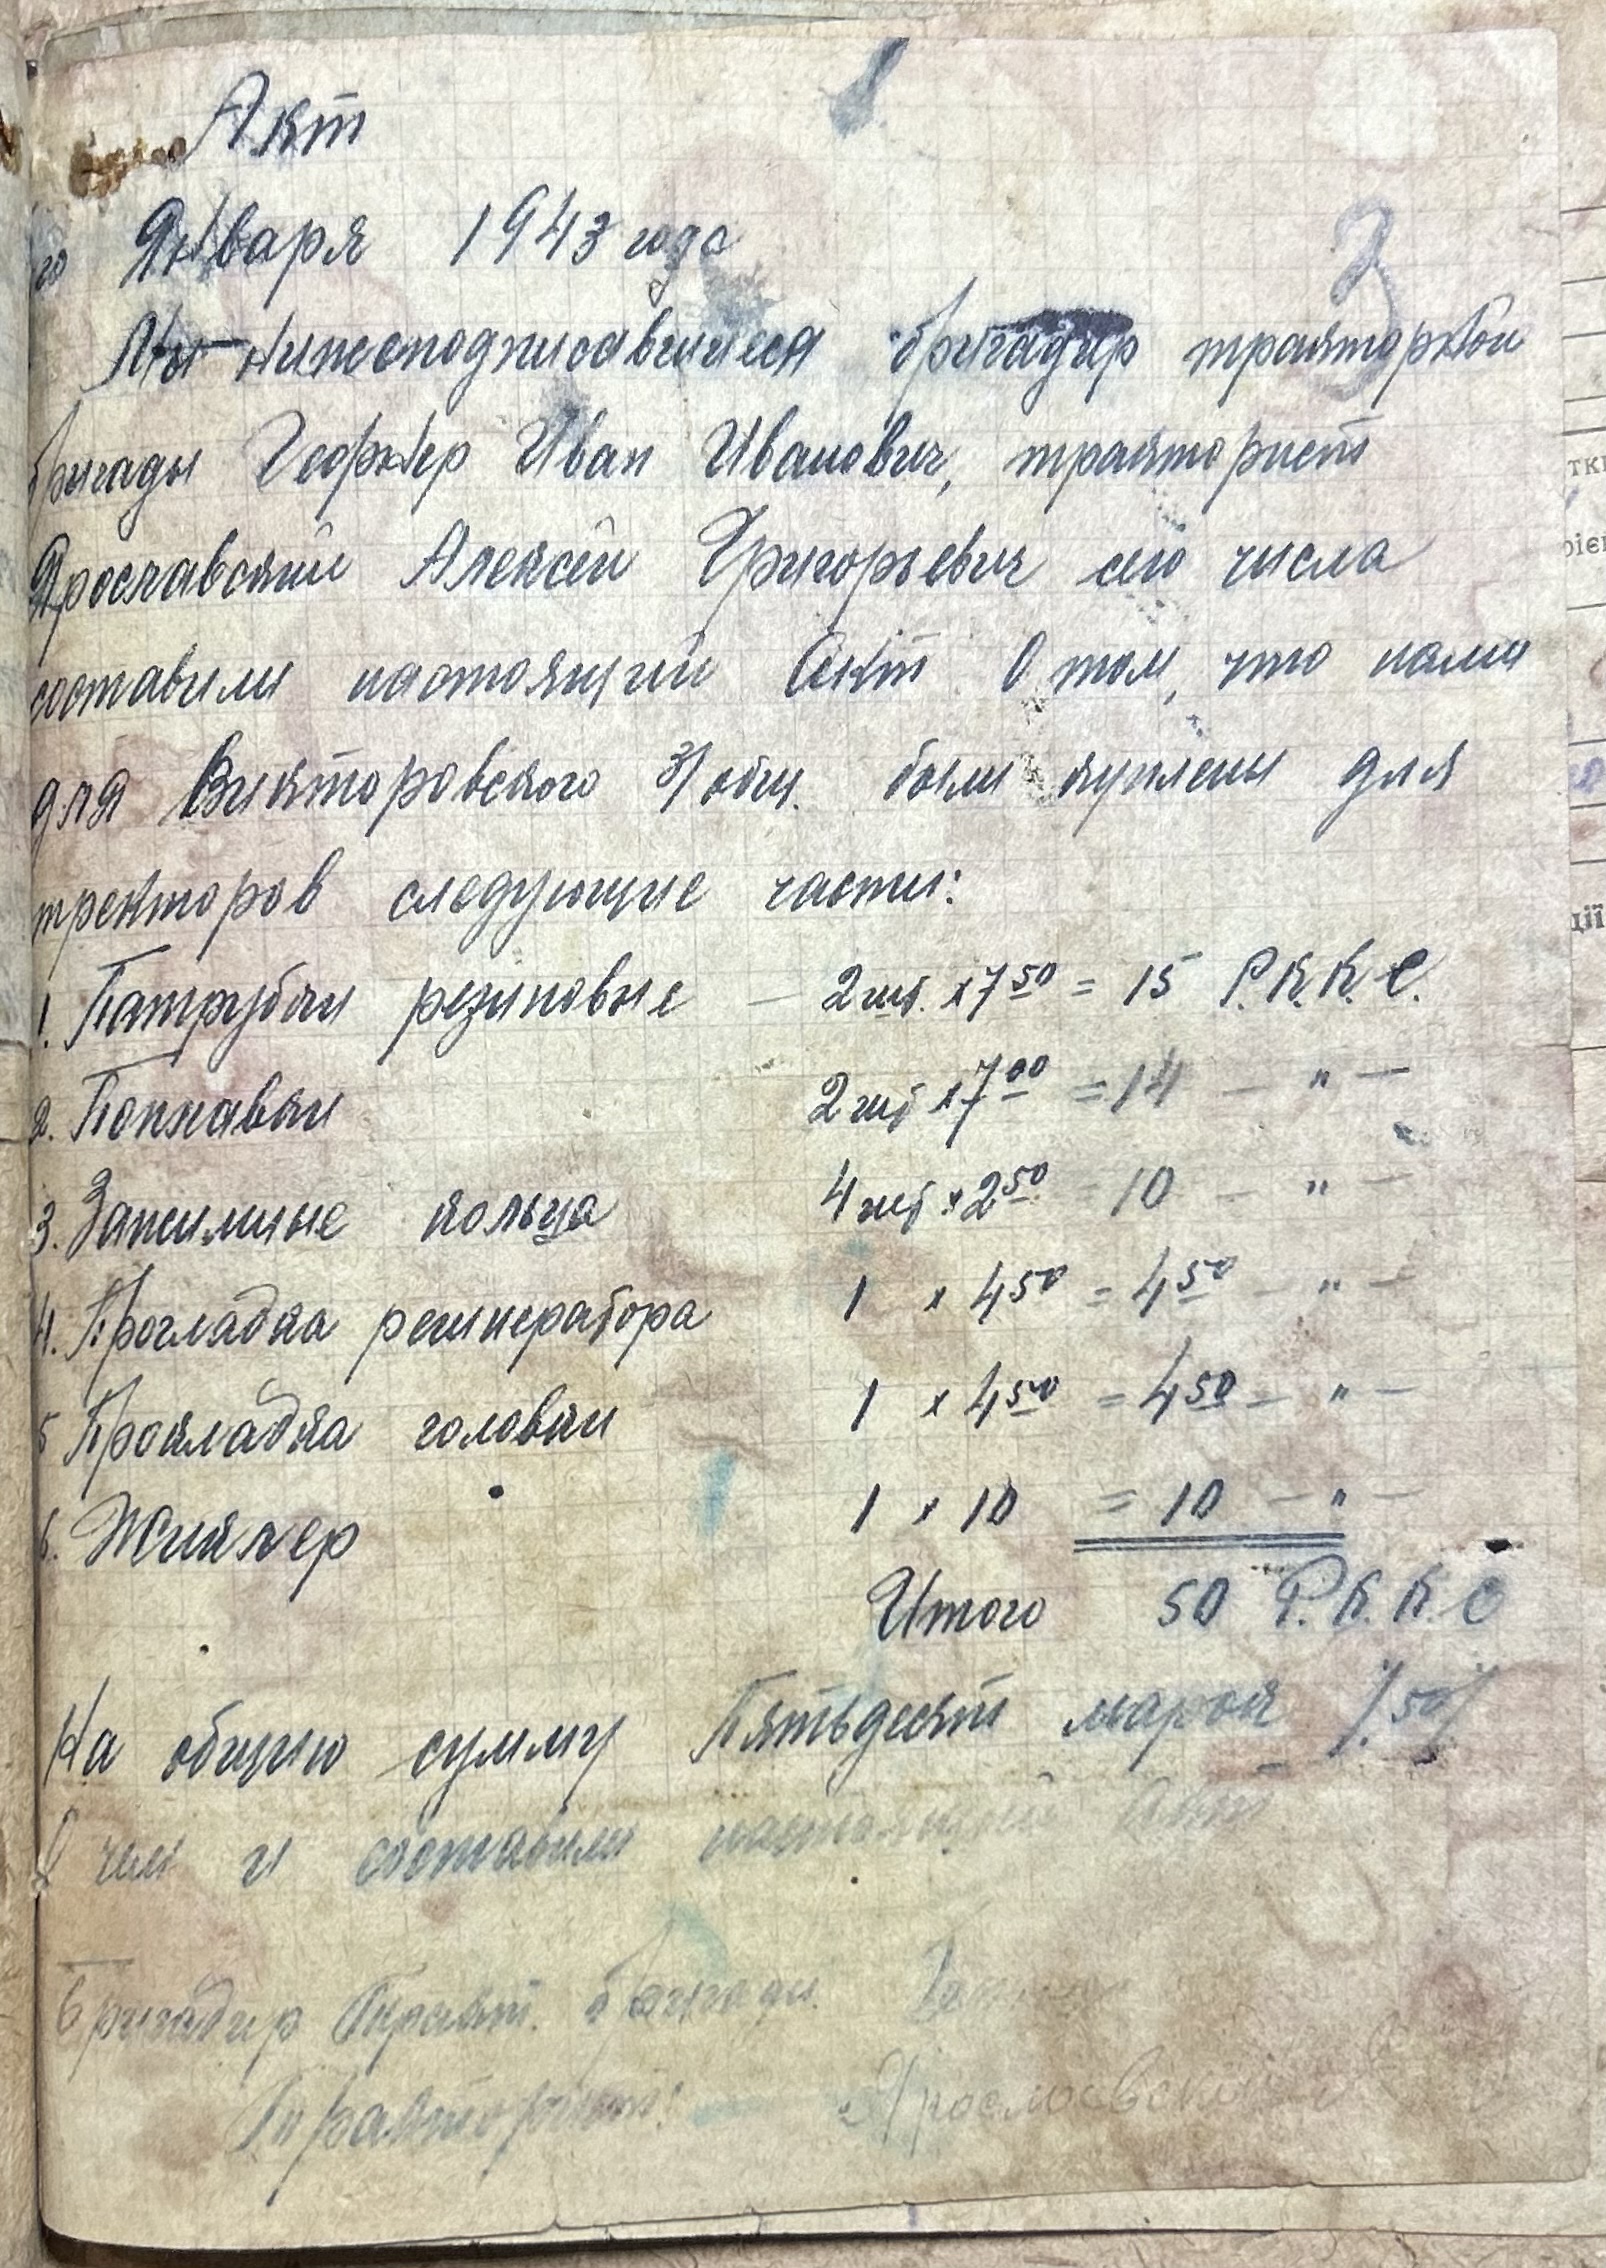 Акт
го Января 1943 года
3
Мы нижеподписавшиеся бригадир тракторной
бригады Геофнер Иван Иванович, тракторист
Ярославский Алексей Григорьевич сего числа
составили настоящий Акт о том, что нами
для Викторовского з/общ. были куплены для
тракторов следующие части:
1. Патрубки резиновые — 2 шт. x 7 50 = 15 Р.К.К.С.
2. Поплавки 2 шт x 7 00 = 14 — " —
3. Зажимные кольца 4 шт x 2 50 = 10 — " —
4. Прогладка регинератора 1 x 4 50 = 4 50 — " —
5 Прокладка головки 1 x 4 50 = 4 50 — " —
6. Жиклер 1 x 10 = 10 — " —
Итого 50 Р.К.К.С
На общую сумму Пятьдесят марок /.50/
В чем и составили настоящий Акт
Бригадир Тракт. бригады.
Тракторист: Ярославский